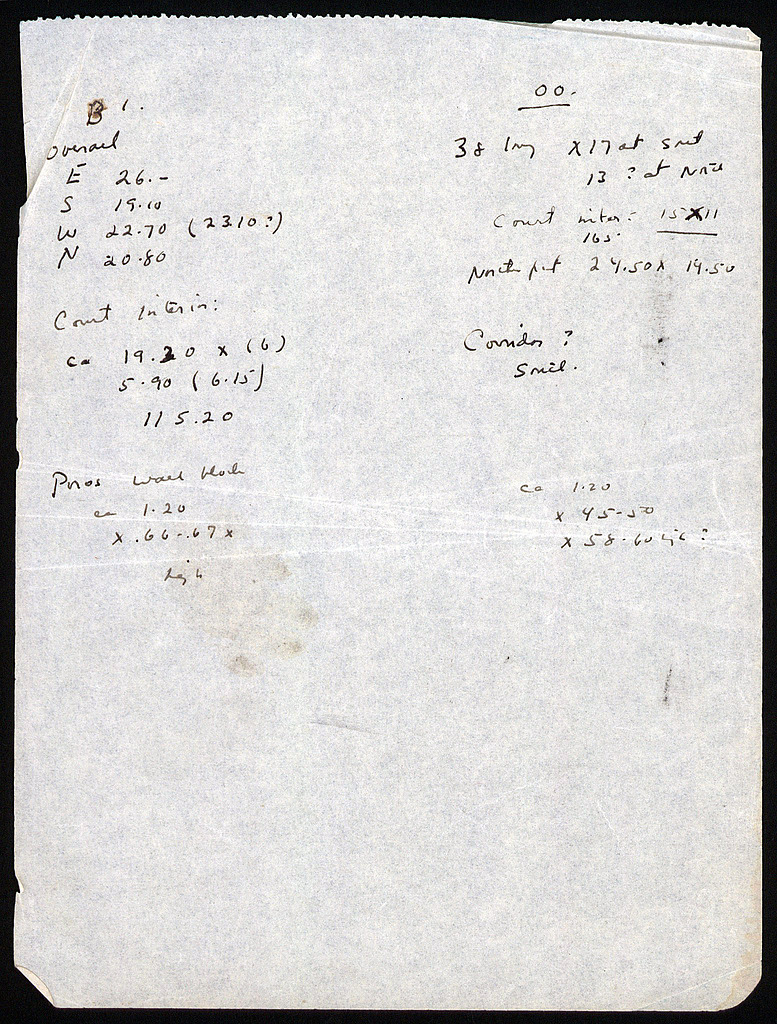 B 1.
Overall
E 26.-
S 19.10
W 22.70 (23.10?)
N 20.80
Court interior:
ca 19.20 x (6)
5.90 (6.15)
115.20
Poros wall block
ca 1.20
x .66-.67 x
high
OO.
38 long x 17 at South
13 ? at North
Court inter: 15 x 11
165
North part 24.50 x 19.50
Corridor ?
South.
ca 1.20
x 45-50
x 58-60 high ?